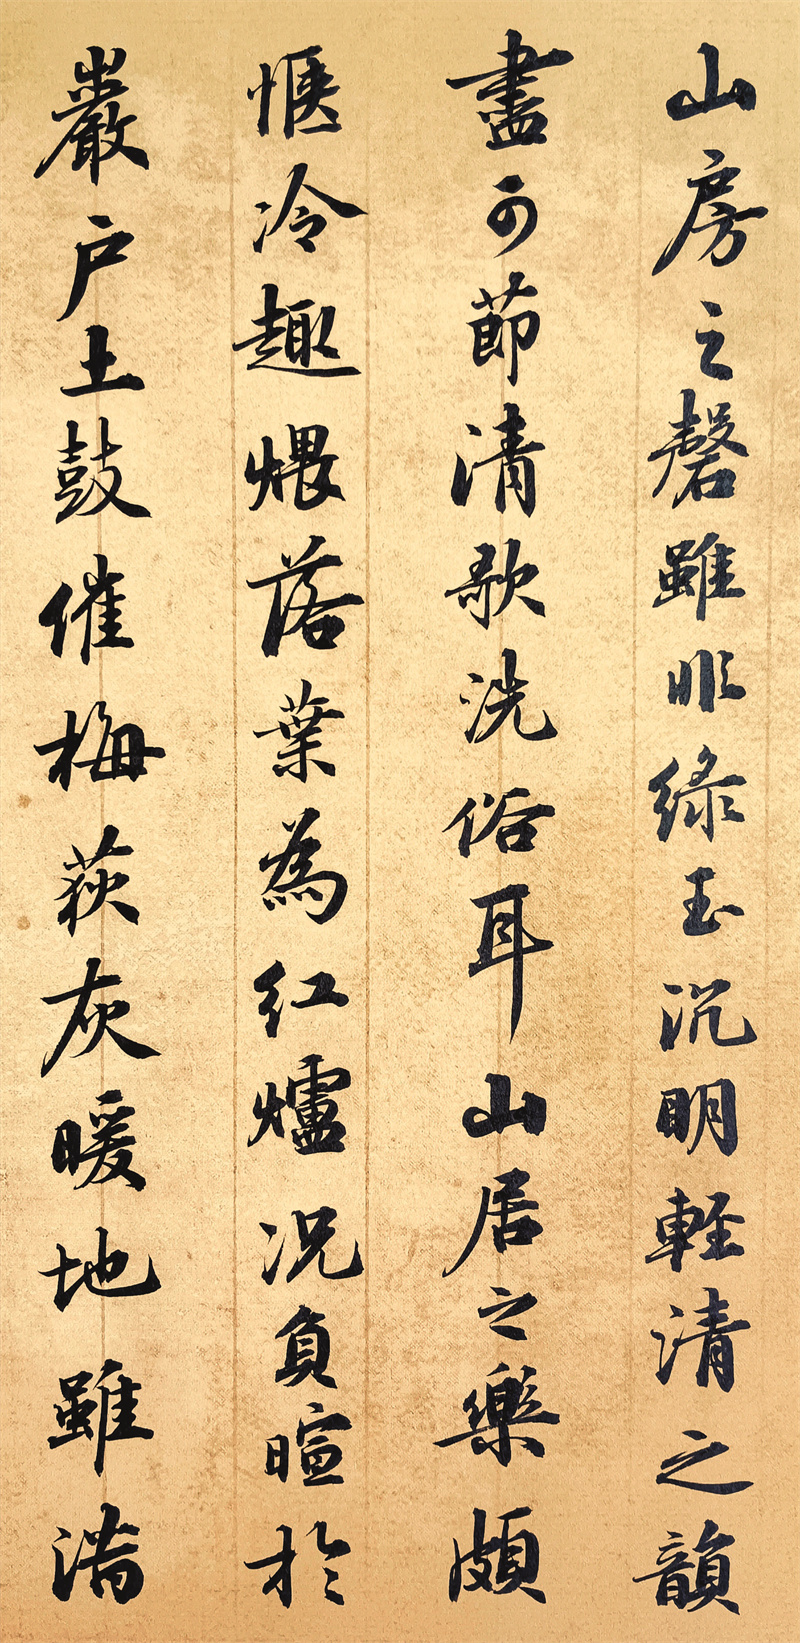 山房之磬雖非綠玉沉明輕清之韻
盡可節清歌洗俗耳山居之樂頗
惬冷趣煨落葉為紅爐況負暄於
巖户土鼓催梅荻灰暖地雖潇